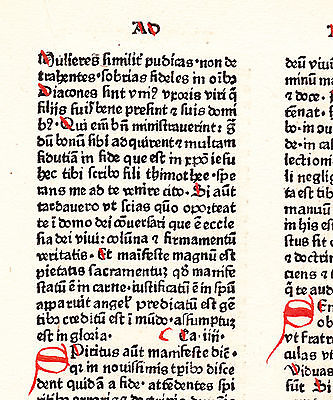 Ad
Mulieres similit pudicas · non de
trahentes · sobrias fideles in oibꝰ
Diacones sint vniꝰ vxoris viri q̃
filijs suis bene presint ⁊ suis domi
bꝰ · Qui em̃ bñ ministrauerint : g̃
dũ bonũ sibi adquirent ⁊ multam
fidutiã in fide que est in xp̃o iesu
hec tibi scribo fili thimothee · spe
rans me ad te venire cito · Si aũt
tardauero vt scias quõ oporteat
te ĩ domo dei cõuersari que ẽ eccle
sia dei viui : colũna ⁊ firmamentũ
veritatis · Et maifeste magnũ est
pietatis sacramentũ · qð manife
statũ ẽ in carne · iustificatũ ẽ in spũ
apparuit angel' · predicatũ est gẽ
tibꝰ · creditũ est ĩ mũdo · assumptuȝ
est in gloria · Ca · iiii ·
Spiritus aũt manifeste dic̃ ·
qꝛ in nouissimis tp̃ibꝰ disce
dent quidã a fide · attẽdentes spi
deũ viui
minũ m
⁊ doce ·
tenat ·
bo · in
in car
lectioni
li neglig
ta est ti
manuũ
in his es
stus fit
⁊ doctri
ciens ⁊
q̃ te aud
Sen
obs
fratr
culas vt
Viduas